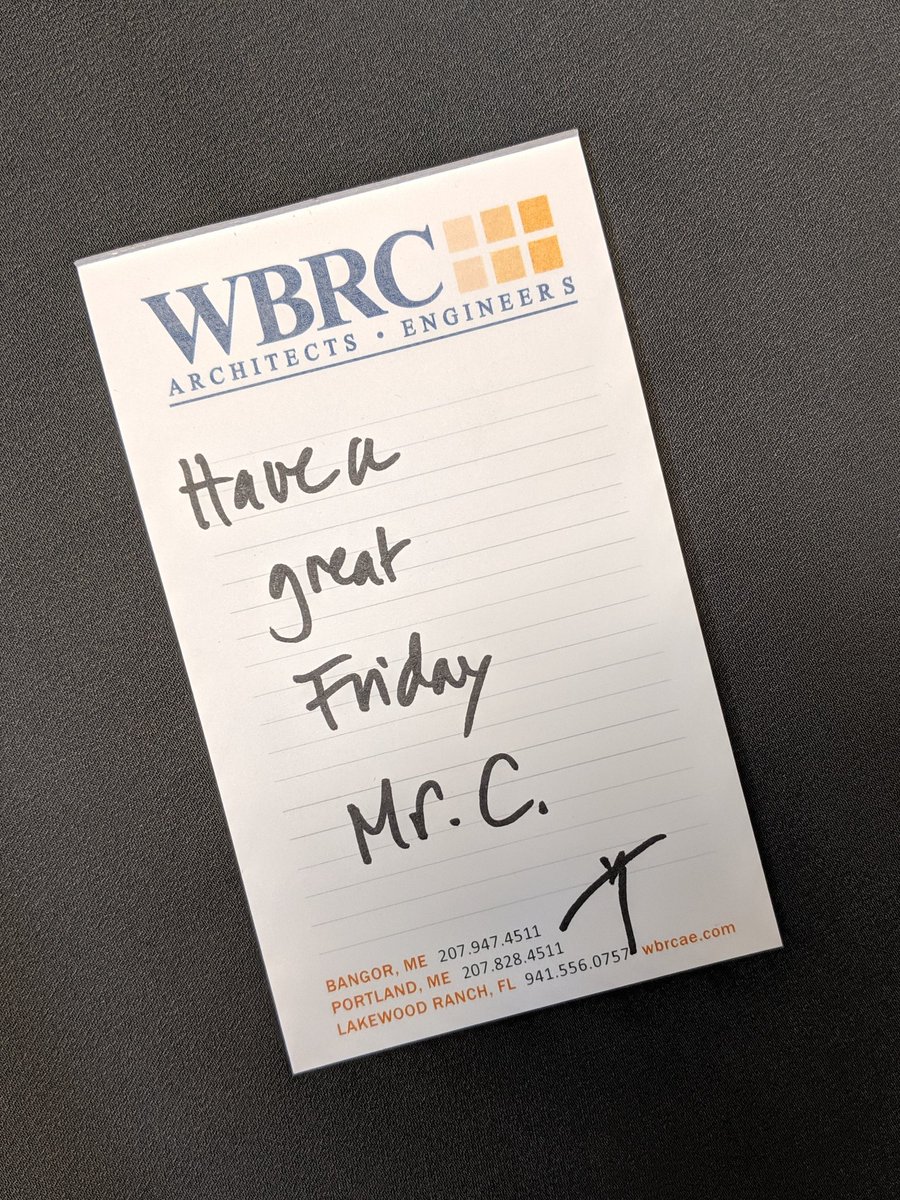 WBRC
ARCHITECTS • ENGINEERS
Have a
great
Friday
Mr. C.
BANGOR, ME 207.947.4511
PORTLAND, ME 207.828.4511
LAKEWOOD RANCH, FL 941.556.0757 wbrcae.com